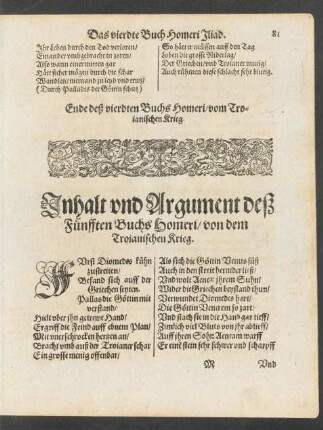 Das vierdte Buch Homeri Iliad. 81
Ihr Leben durch den Tod verloren/
Einander vmbgebracht in zoren/
Also wann einer wieren gar
Hätt sicher mögen durch die schar
Wandlen/niemand zu leyd vnd trutz/
(Durch Palladis der Göttin schutz)
So hätt er müssen auff den Tag
Loben die grosse Niderlag/
Der Griechen vnd Troianer mutig/
Auch rühmen diese schlacht sehr blutig.
Ende deß vierdten Buchs Homeri/vom Tro-
ianischen Krieg.
Inhalt vnd Argument deß
Fünfften Buchs Homeri/ von dem
Troianischen Krieg.
Diomedes kühn
zustreiten/
Befand sich auff der
Griechen seyten.
Pallas die Göttin mit
verstand/
Hielt vber ihn getrewe Hand/
Ergriff die Feind auff einem Plan/
Mit vnerschrocken hertzen an/
Bracht vmb auß der Troianer schar
Ein grosse menig offenbar/
Als sich die Göttin Venus süß
Auch in den streit hernider ließ/
Vnd wolt Aeneæ ihrem Suhn/
Wider die Griechen beystand thun/
Verwundet Diomedes hart/
Die Göttin Venerem so zart/
Vnd stach sie in die Hand gar tieff/
Zimlich viel Bluts von ihr ablieff/
Auff ihrem Sohn Aeneam warff
Er ein stein sehr schwer vnd scharpff
M Vnd